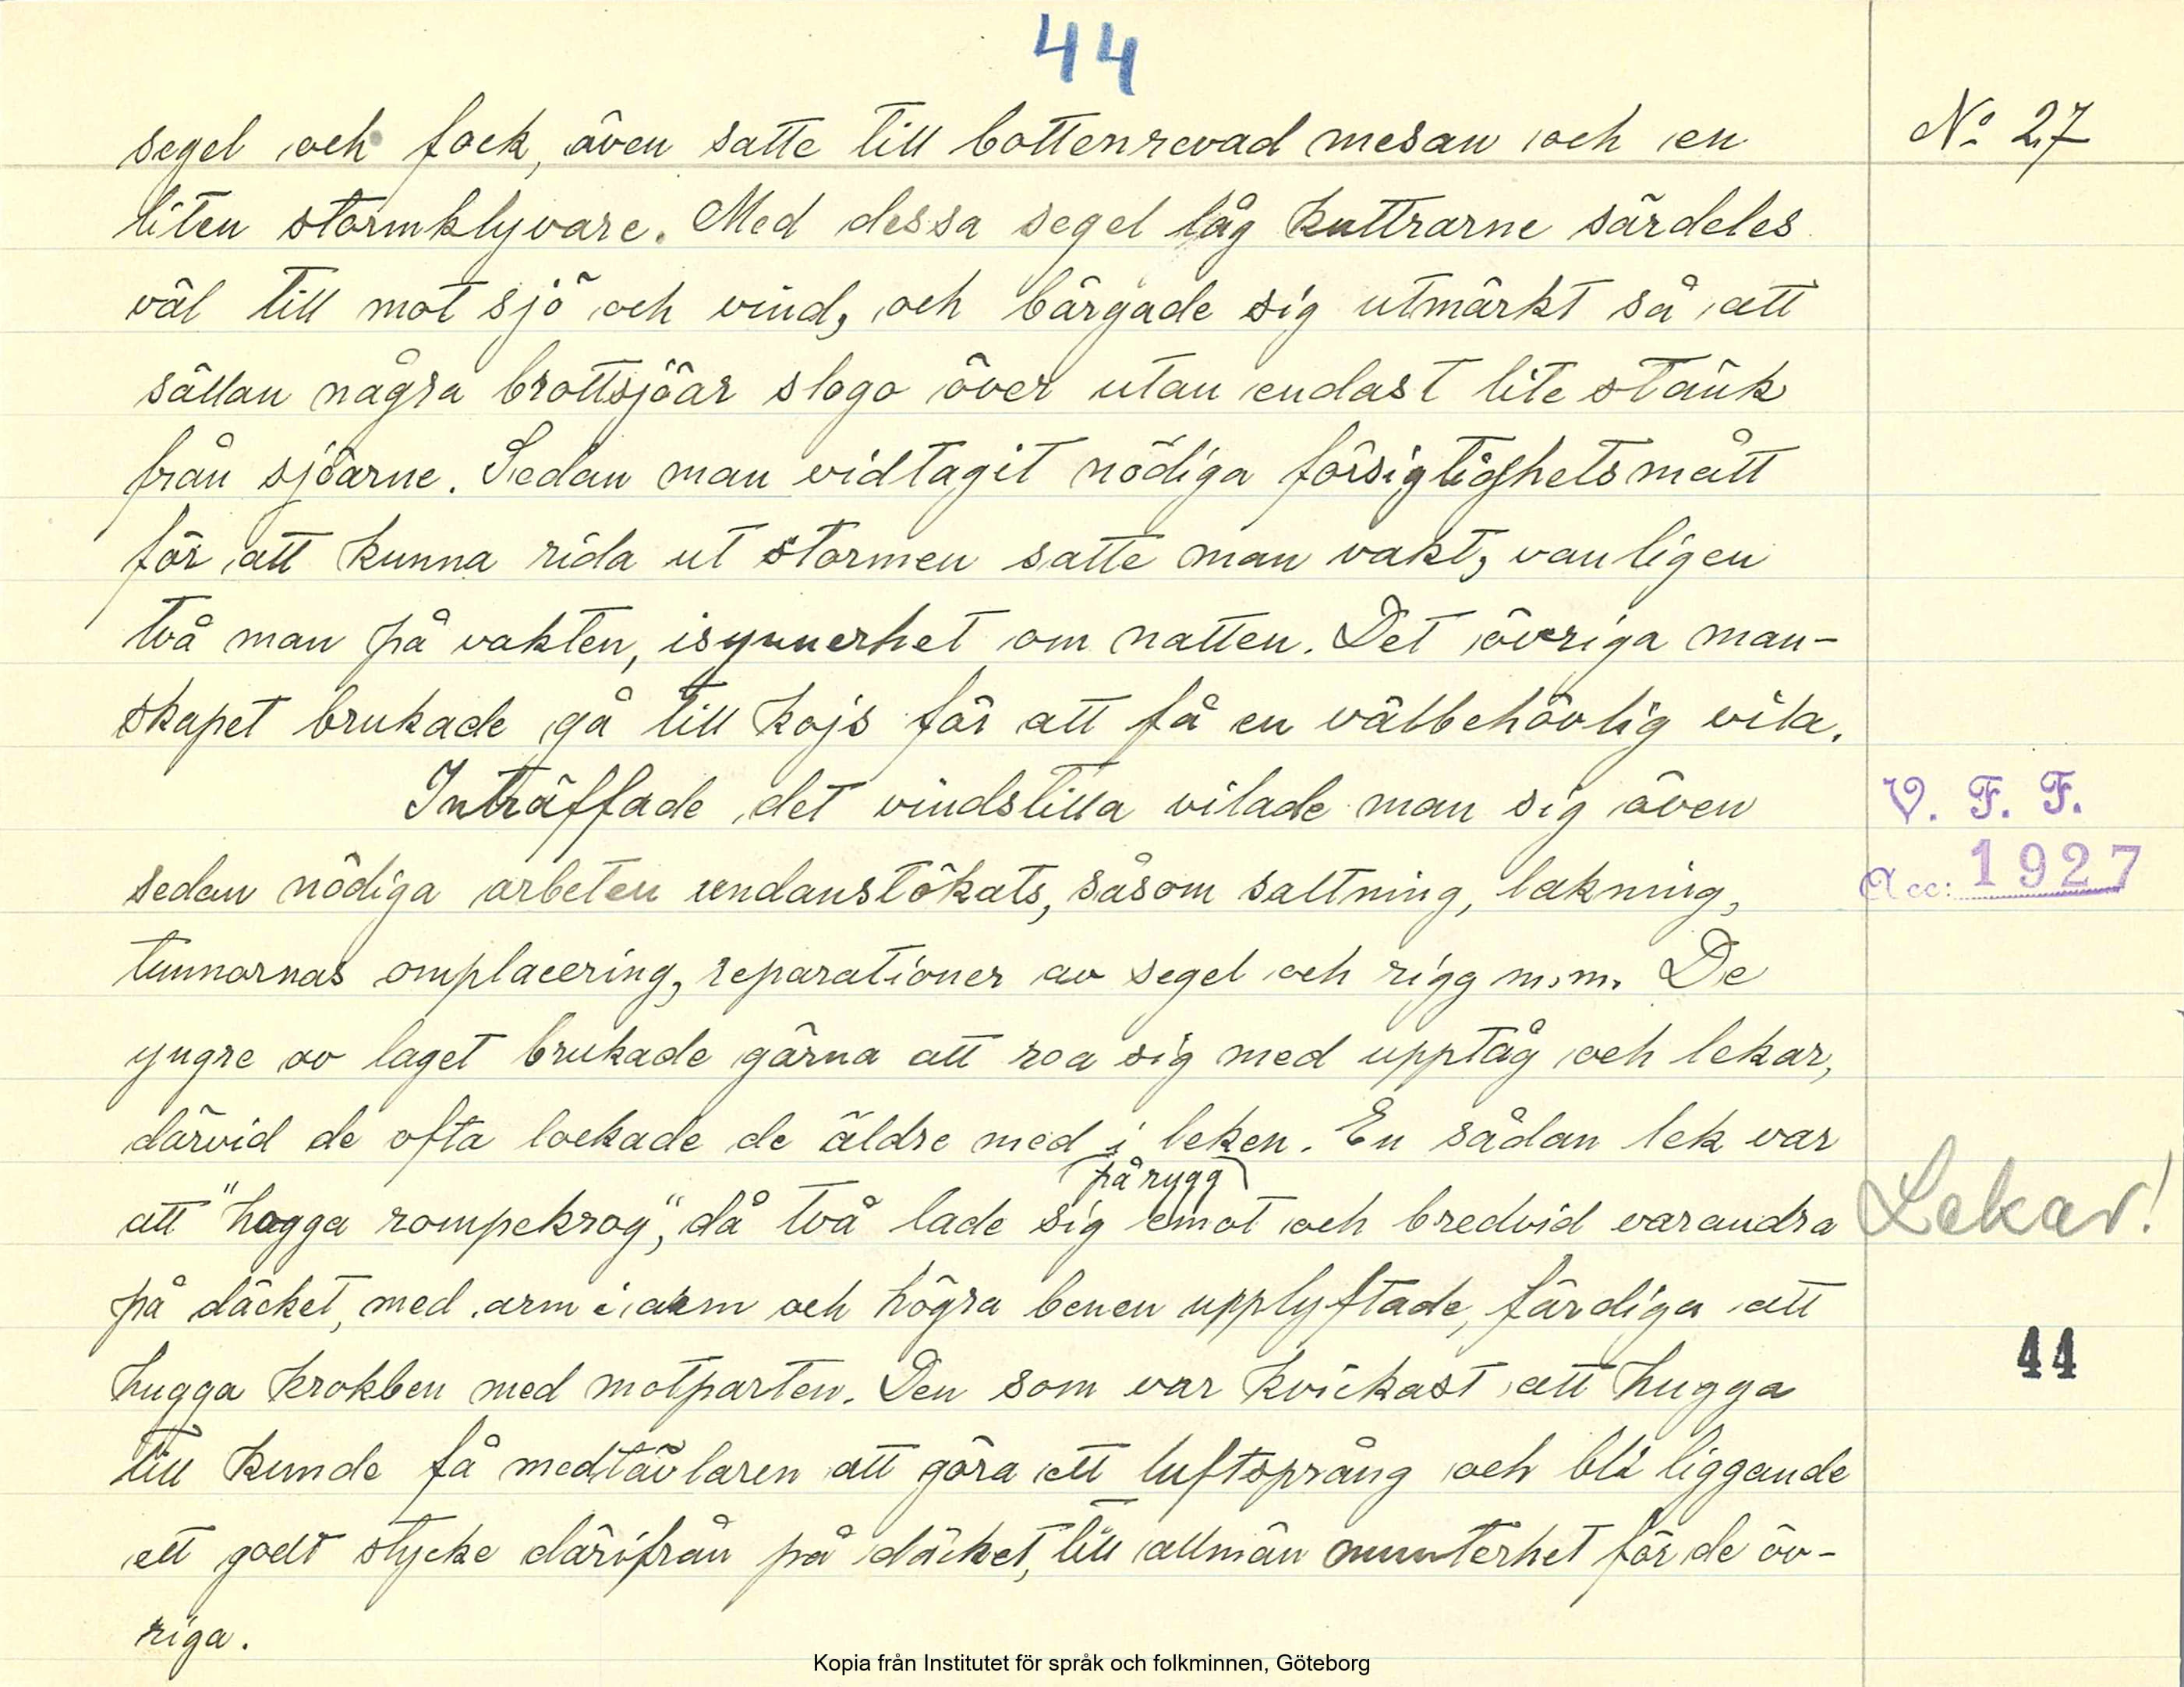 44
segel och fock, även satte till bottenrevad mesan och en
liten stormklyvare. Med dessa segel låg kuttrarne särdeles
väl till mot sjö och vind, och bärgade sig utmärkt så att
sällan några brottsjöar slogo över utan endast lite stänk
från sjöarne. Sedan man vidtagit nödiga försigtighetsmått
för att kunna rida ut stormen satte man vakt, vanligen
två man på vakten, isynnerhet om natten. Det övriga man-
skapet brukade gå till kojs för att få en välbehövlig vila.
Inträffade det vindstilla vilade man sig även
sedan nödiga arbeten undanstökats, såsom saltning, lakning,
tunnornas omplacering, reparationer av segel och rigg m.m. De
yngre av laget brukade gärna att roa sig med upptåg och lekar,
därvid de ofta lockade de äldre med i leken. En sådan lek var
på rygg
att "hogga rompekrog", då två lade sig emot och bredvid varandra
på däcket, med arm i arm och högra benen upplyftade, färdiga att
hugga krokben med motparten. Den som var kvickast att hugga
till kunde få medtävlaren att göra ett luftsprång och bli liggande
ett godt stycke därifrån på däcket, till allmän munterhet för de öv-
riga.
No 27
V. F. F.
Acc: 1927
Lekar!
44
Kopia från Institutet för språk och folkminnen, Göteborg